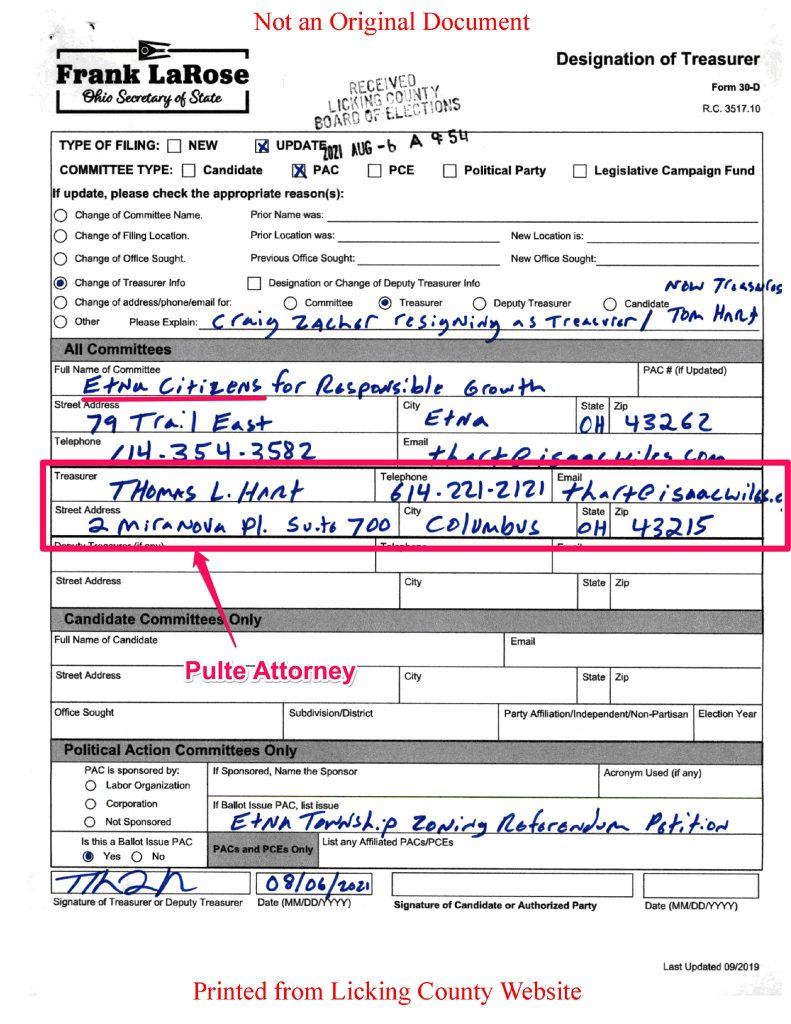 Not an Original Document
Frank LaRose
Ohio Secretary of State
Designation of Treasurer
Form 30-D
R.C. 3517.10
RECEIVED
LICKING COUNTY
BOARD OF ELECTIONS
2021 AUG -6 A 9:54
TYPE OF FILING: NEW X UPDATE
COMMITTEE TYPE: Candidate X PAC PCE Political Party Legislative Campaign Fund
If update, please check the appropriate reason(s):
Change of Committee Name. Prior Name was:
Change of Filing Location. Prior Location was: New Location is:
Change of Office Sought. Previous Office Sought: New Office Sought:
Change of Treasurer Info Designation or Change of Deputy Treasurer Info
Change of address/phone/email for: Committee Treasurer Deputy Treasurer Candidate
New Treasurer
Other Please Explain: Craig Zacher resigning as Treasurer / Tom Hart
All Committees
Full Name of Committee PAC # (if Updated)
Etna Citizens for Responsible Growth
Street Address City State Zip
79 Trail East Etna OH 43262
Telephone Email
614-354-3582 thart@isaacwiles.com
Treasurer Telephone Email
Thomas L. Hart 614-221-2121 thart@isaacwiles.c
Street Address City State Zip
2 Miranova Pl. Suite 700 Columbus OH 43215
Deputy Treasurer (if any) Telephone Email
Street Address City State Zip
Candidate Committees Only
Full Name of Candidate Email
Pulte Attorney
Street Address City State Zip
Office Sought Subdivision/District Party Affiliation/Independent/Non-Partisan Election Year
Political Action Committees Only
PAC is sponsored by: If Sponsored, Name the Sponsor Acronym Used (if any)
Labor Organization
Corporation
Not Sponsored
If Ballot Issue PAC, list issue
Etna Township Zoning Referendum Petition
Is this a Ballot Issue PAC
Yes No
PACs and PCEs Only List any Affiliated PACs/PCEs
08/06/2021
Signature of Treasurer or Deputy Treasurer Date (MM/DD/YYYY) Signature of Candidate or Authorized Party Date (MM/DD/YYYY)
Last Updated 09/2019
Printed from Licking County Website